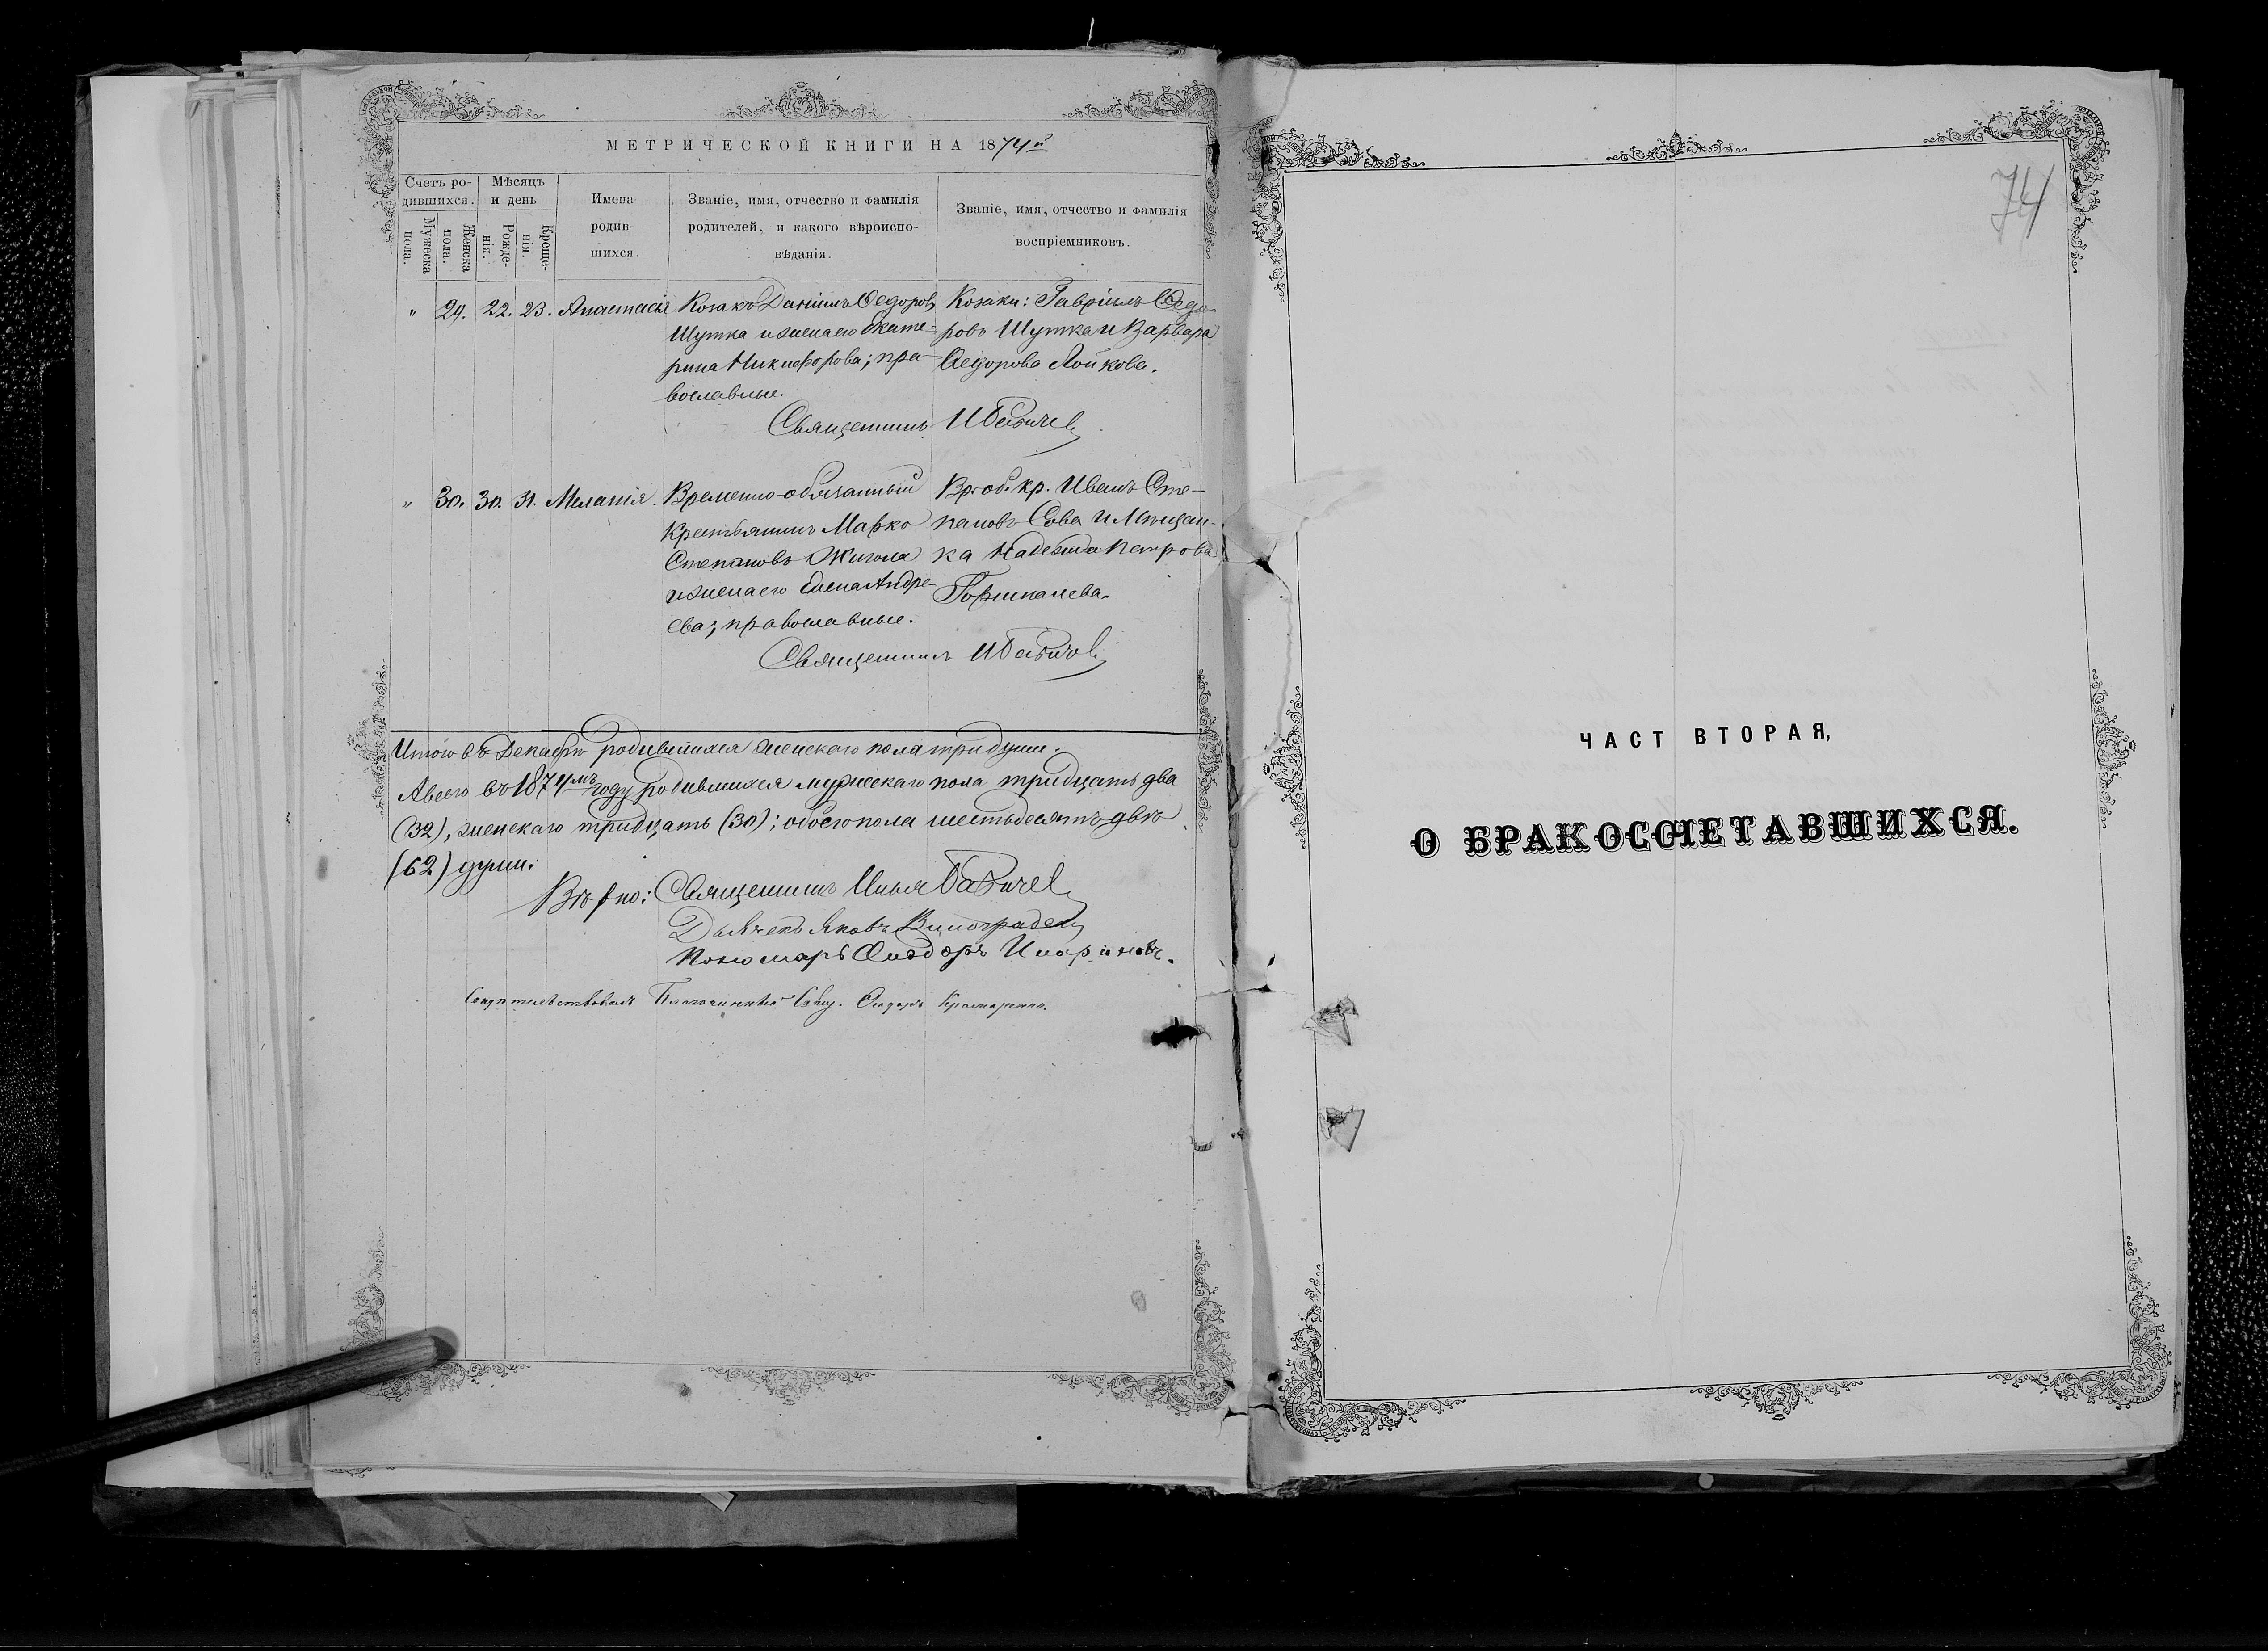 МЕТРИЧЕСКОЙ КНИГИ НА 1874й
Счетъ ро-
дившихся.
Мужеска
пола.
Женска
пола.
Мѣсяцъ
и день
Рожде-
нія.
Креще-
нія.
Имена
родив-
шихся.
Званіе, имя, отчество и фамилія
родителей, и какого вѣроиспо-
вѣданія.
Званіе, имя, отчество и фамилія
воспріемниковъ.
" 29. 22. 23. Анастасія
Козакъ Даніилъ Ѳедоровъ
Шутка и жена его Екате-
рина Никифорова; пра-
вославные.
Козаки: Гавріилъ Ѳедо-
ровъ Шутка и Варвара
Ѳедорова Лойкова.
Священникъ И Бабичев
" 30. 30. 31. Меланія.
Временно-обязанный
Крестьянинъ Марко
Степановъ Жигола
и жена его Елена Андре-
ева; православные.
Вр. об. кр. Иванъ Сте-
пановъ Сова и Мѣщан-
ка Надежда Петрова
Священникъ И Бабичев
Итого въ Декабрѣ родившихся женскаго пола три души.
А всего въ 1874мъ году родившихся мужескаго пола тридцать два
(32), женскаго тридцать (30); обоего пола шестьдесятъ двѣ
(62) души.
Вѣрно: Священникъ Илья Бабичев
Дьячекъ Яковъ
Пономарь Ѳеодоръ
Свидѣтельствовалъ Благочинный Свящ. Ѳеодоръ
74
ЧАСТ ВТОРАЯ,
О БРАКОСОЧЕТАВШИХСЯ.